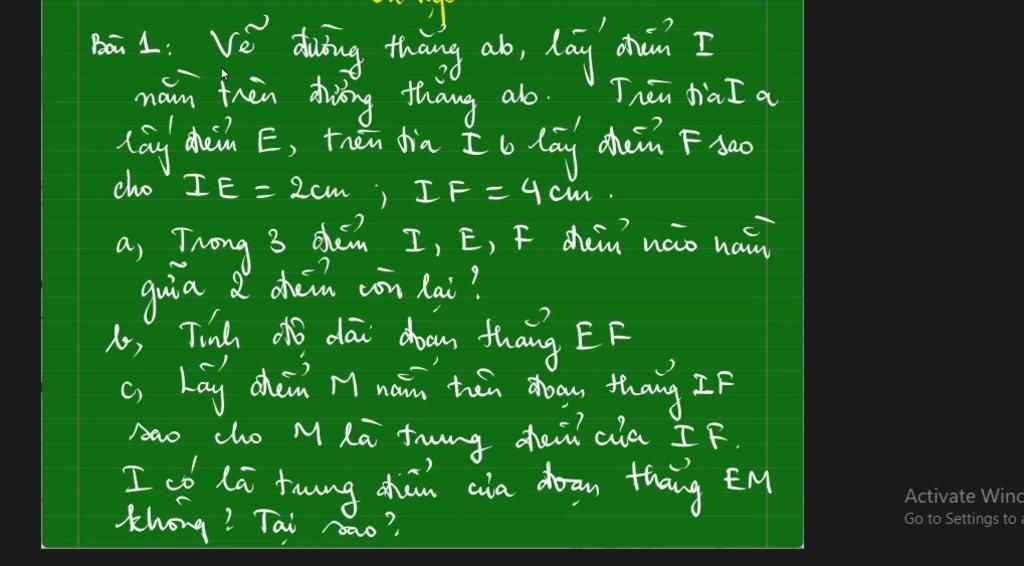 Bài 1: Vẽ đường thẳng ab, lấy điểm I
nằm trên đường thẳng ab. Trên tia I a
lấy điểm E, trên tia I b lấy điểm F sao
cho IE = 2cm ; IF = 4cm.
a, Trong 3 điểm I, E, F điểm nào nằm
giữa 2 điểm còn lại?
b, Tính độ dài đoạn thẳng EF
c, Lấy điểm M nằm trên đoạn thẳng IF
sao cho M là trung điểm của IF.
I có là trung điểm của đoạn thẳng EM
không? Tại sao?
Activate Winc
Go to Settings to a